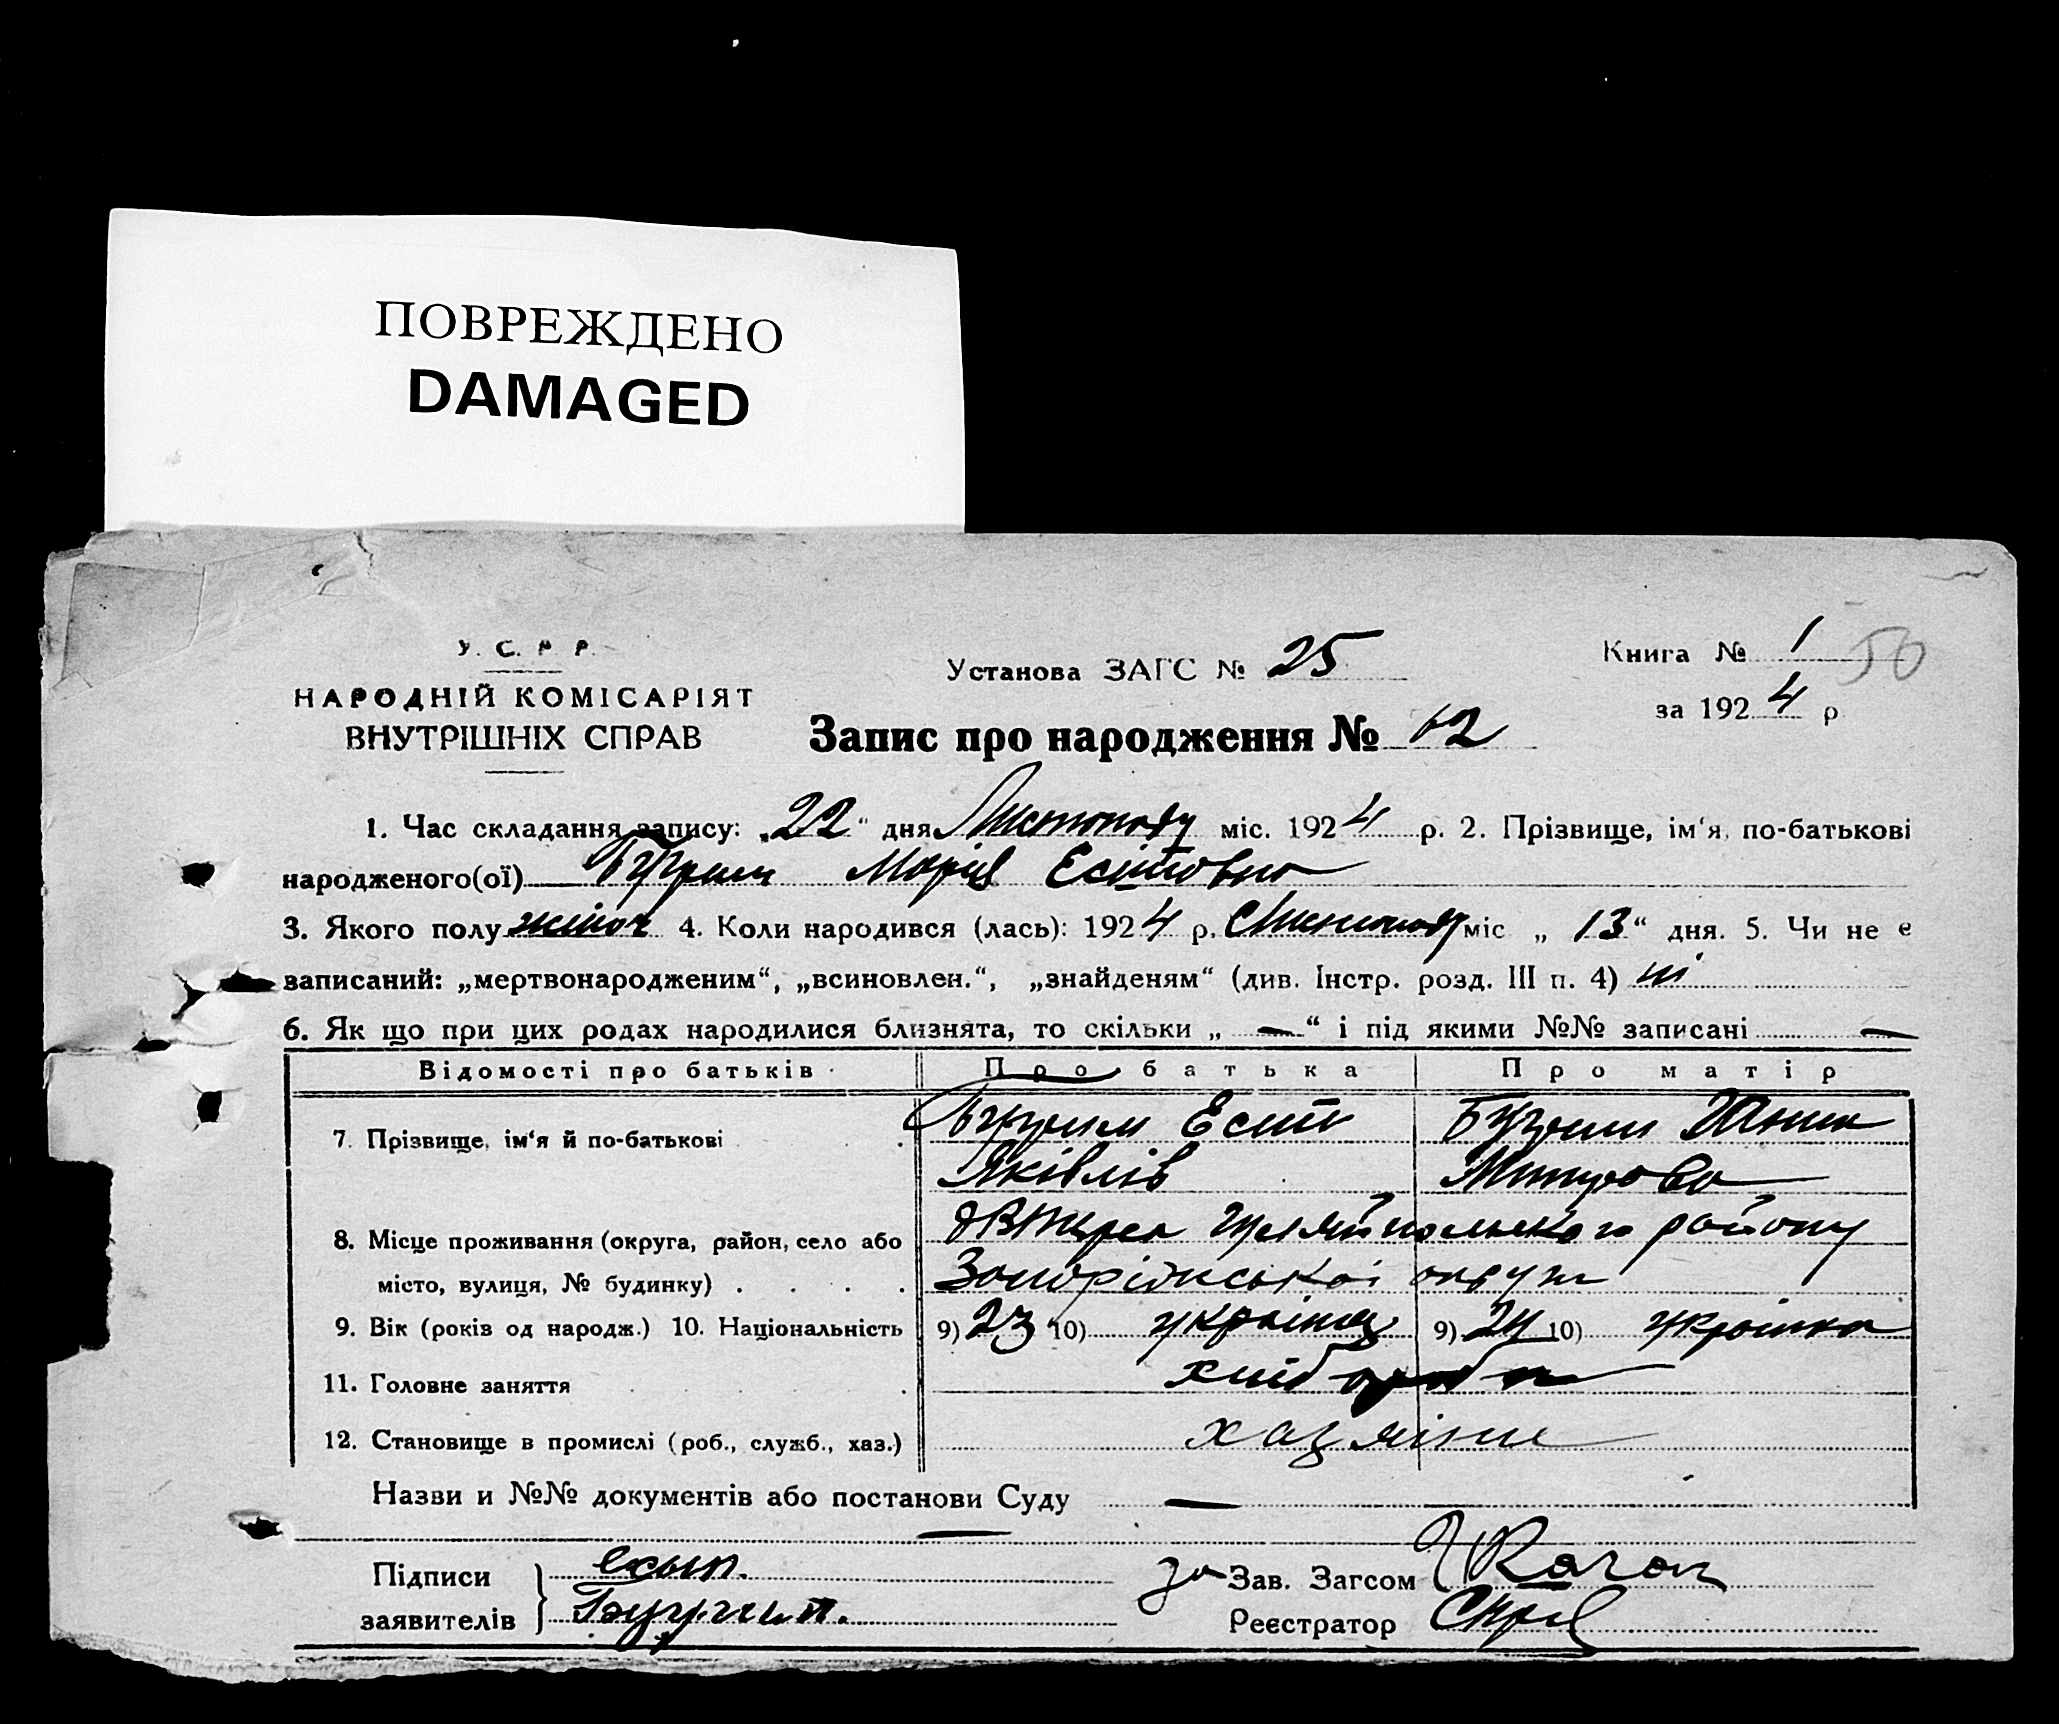 ПОВРЕЖДЕНО
DAMAGED
У. С. Р. Р.
НАРОДНІЙ КОМІСАРІЯТ
ВНУТРІШНІХ СПРАВ
Установа ЗАГС № 25
Книга № 1 50
за 1924 р
Запис про народження №
1. Час складання запису: „22“ дня Листопаду міс. 1924 р. 2. Прізвище, ім‘я, по-батькові
народженого(ої) Марія
3. Якого полу жіноч 4. Коли народився (лась): 1924 р. Листопаду міс „ 13“ дня. 5. Чи не е
записаний: „мертвонародженим“, „всиновлен.“, „знайденям“ (див. Інстр. розд. III п. 4) ні
6. Як що при цих родах народилися близнята, то скільки „ — “ і під якими №№ записані —
Відомості про батьків Про батька Про матір
7. Прізвище, ім‘я й по-батькові
Яківлів
8. Місце проживання (округа, район, село або Гуляйпольского району
місто, вулиця, № будинку) . . . . Запорізької округи
9. Вік (років од народж.) 10. Національність 9) 23 10) українец 9) 24 10) українка
11. Головне заняття хлібороби
12. Становище в промислі (роб., служб., хаз.) хазяіни
Назви и №№ документів або постанови Суду —
Підписи за Зав. Загсом
заявителів Реєстратор